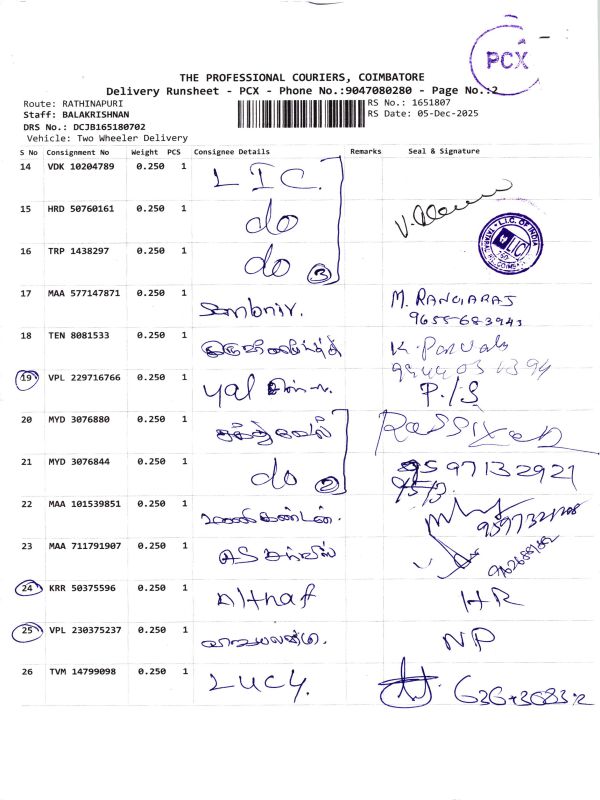 PCX
THE PROFESSIONAL COURIERS, COIMBATORE
Delivery Runsheet - PCX - Phone No.:9047080280 - Page No.:2
Route: RATHINAPURI
RS No.: 1651807
Staff: BALAKRISHNAN
RS Date: 05-Dec-2025
DRS No.: DCJB165180702
Vehicle: Two Wheeler Delivery
S No Consignment No Weight PCS Consignee Details Remarks Seal & Signature
14 VDK 10204789 0.250 1 LIC.
15 HRD 50760161 0.250 1 do
L.I.C. OF INDIA
LIC
16 TRP 1438297 0.250 1 do 3
17 MAA 577147871 0.250 1 M. RANGARAJ
9655683943
18 TEN 8081533 0.250 1
19 VPL 229716766 0.250 1 yal P./S
20 MYD 3076880 0.250 1 சக்திவேல்
21 MYD 3076844 0.250 1 do 2 9597132921
22 MAA 101539851 0.250 1 மணிகண்டன்.
23 MAA 711791907 0.250 1
24 KRR 50375596 0.250 1 Althaf HR
25 VPL 230375237 0.250 1 NP
26 TVM 14799098 0.250 1 Lucy.